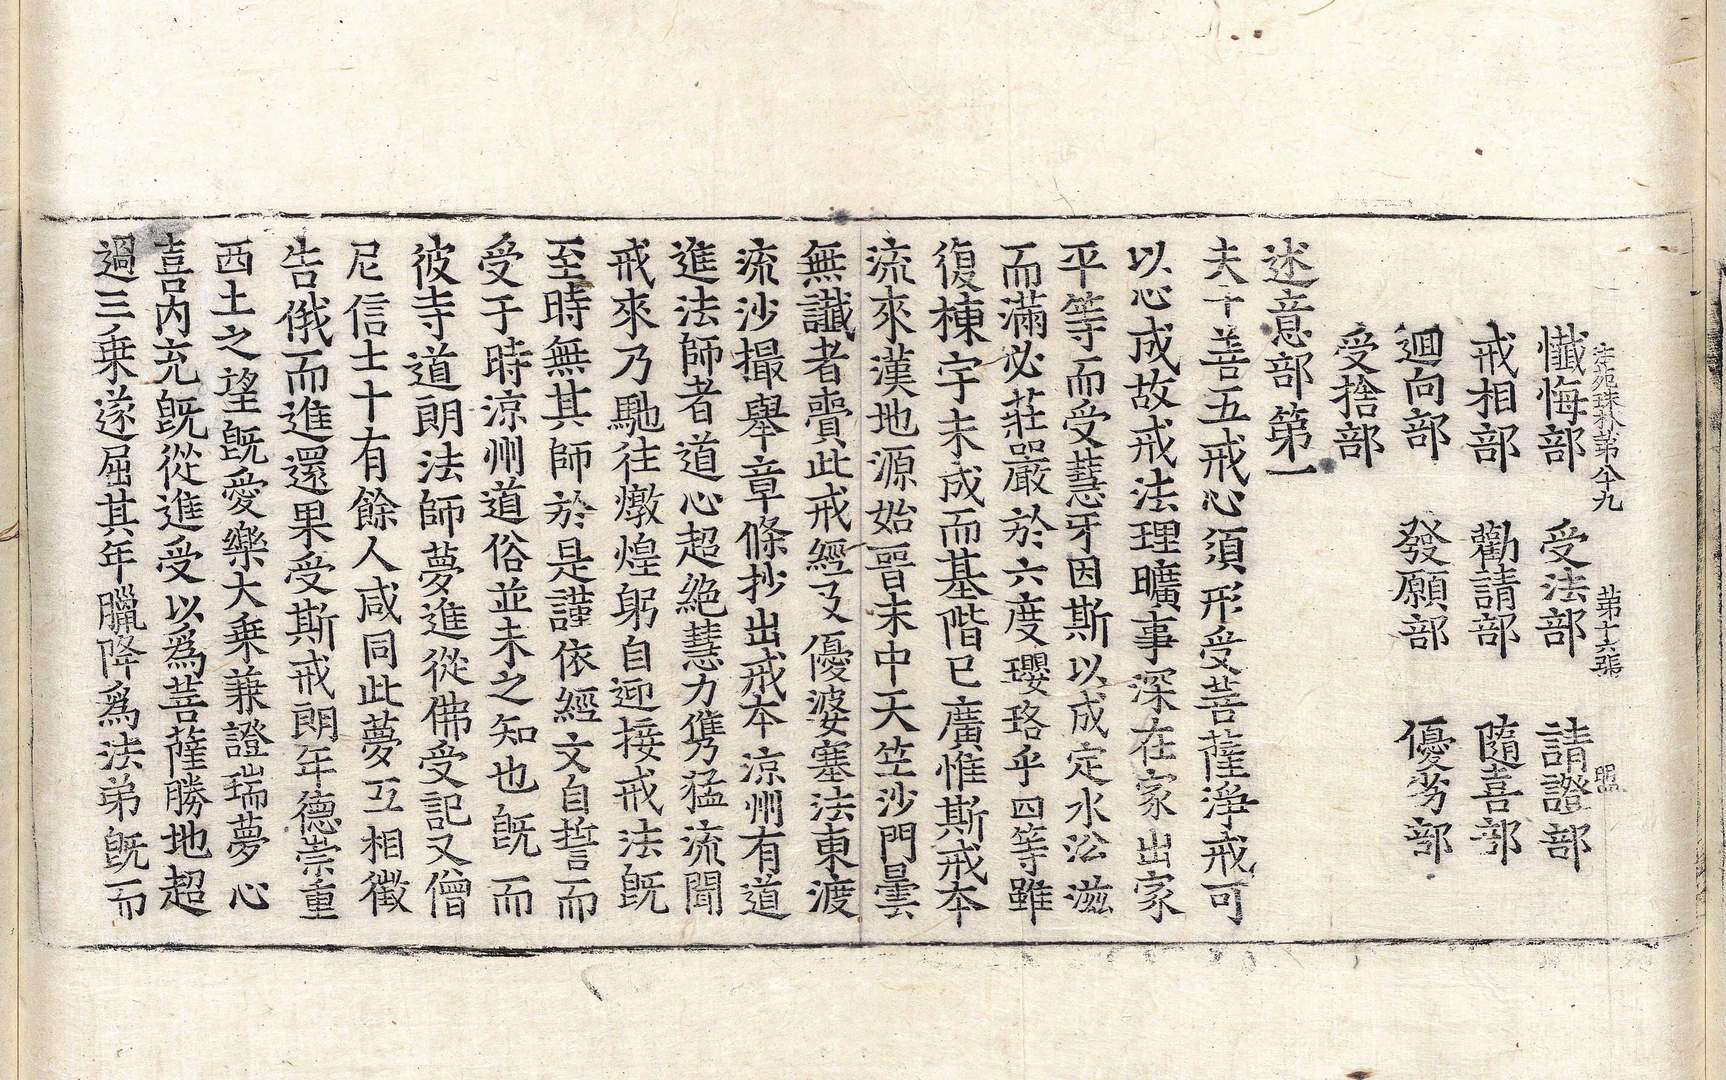 法苑珠林第八十九 第十六張 照
懺悔部 受法部 請證部
戒相部 勸請部 隨喜部
迴向部 發願部 優劣部
受捨部
述意部第一
夫十善五戒心須形受菩薩淨戒可
以心成故戒法理曠事深在家出家
平等而受慧牙因斯以成定水㳂滋
而滿必莊嚴於六度瓔珞乎四等雖
復棟宇未成而基階已廣惟斯戒本
流來漢地源始晉末中天竺沙門曇
無讖者賷此戒經又優婆塞法東渡
流沙撮舉章條抄出戒本涼州有道
進法師者道心超絕慧力儁猛流聞
戒來乃馳往燉煌躬自迎接戒法旣
至時無其師於是謹依經文自誓而
受于時涼州道俗並未之知也旣而
彼寺道朗法師夢進從佛受記又僧
尼信士十有餘人咸同此夢互相徵
告俄而進還果受斯戒朗年德崇重
西土之望旣愛樂大乘兼證瑞夢心
喜內充旣從進受以爲菩薩勝地超
過三乘遂屈其年臘降爲法弟旣而